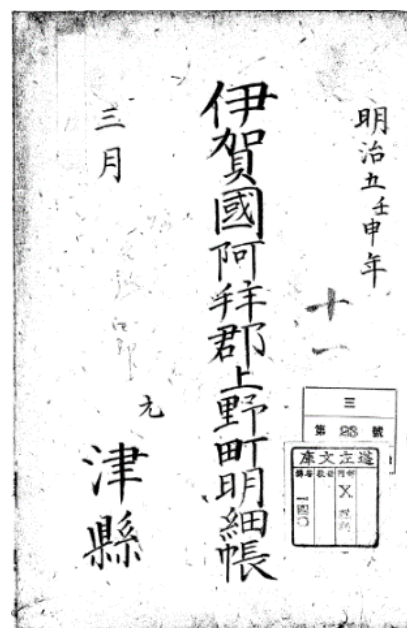 明治五壬申年
十一
伊賀國阿拝郡上野町明細帳
三月
元
津縣
三
第 23 號
遵左文庫
X
一四〇